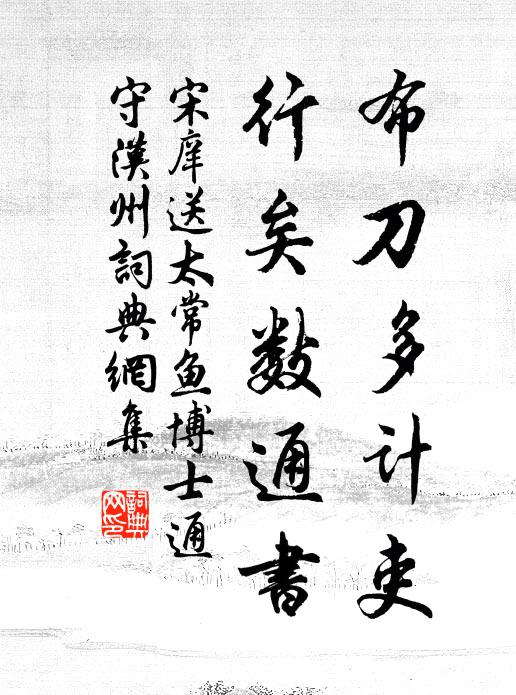 布刀多计吏
行矣数通书
宋庠送太常鱼博士通
守漢州詞典網集
詞典
网印